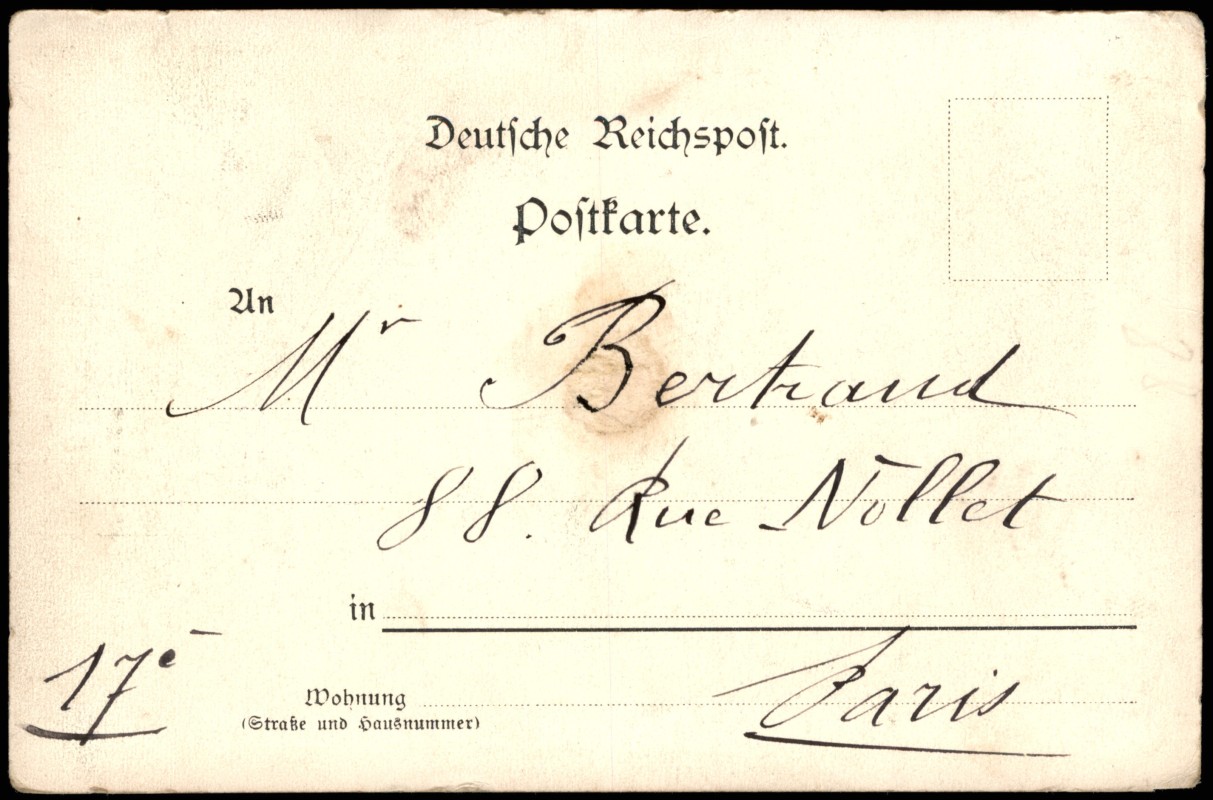 Deutsche Reichspost.
Postkarte.
An
Mr Bertrand
88. Rue Nollet
in
17e
Paris
Wohnung
(Straße und Hausnummer)